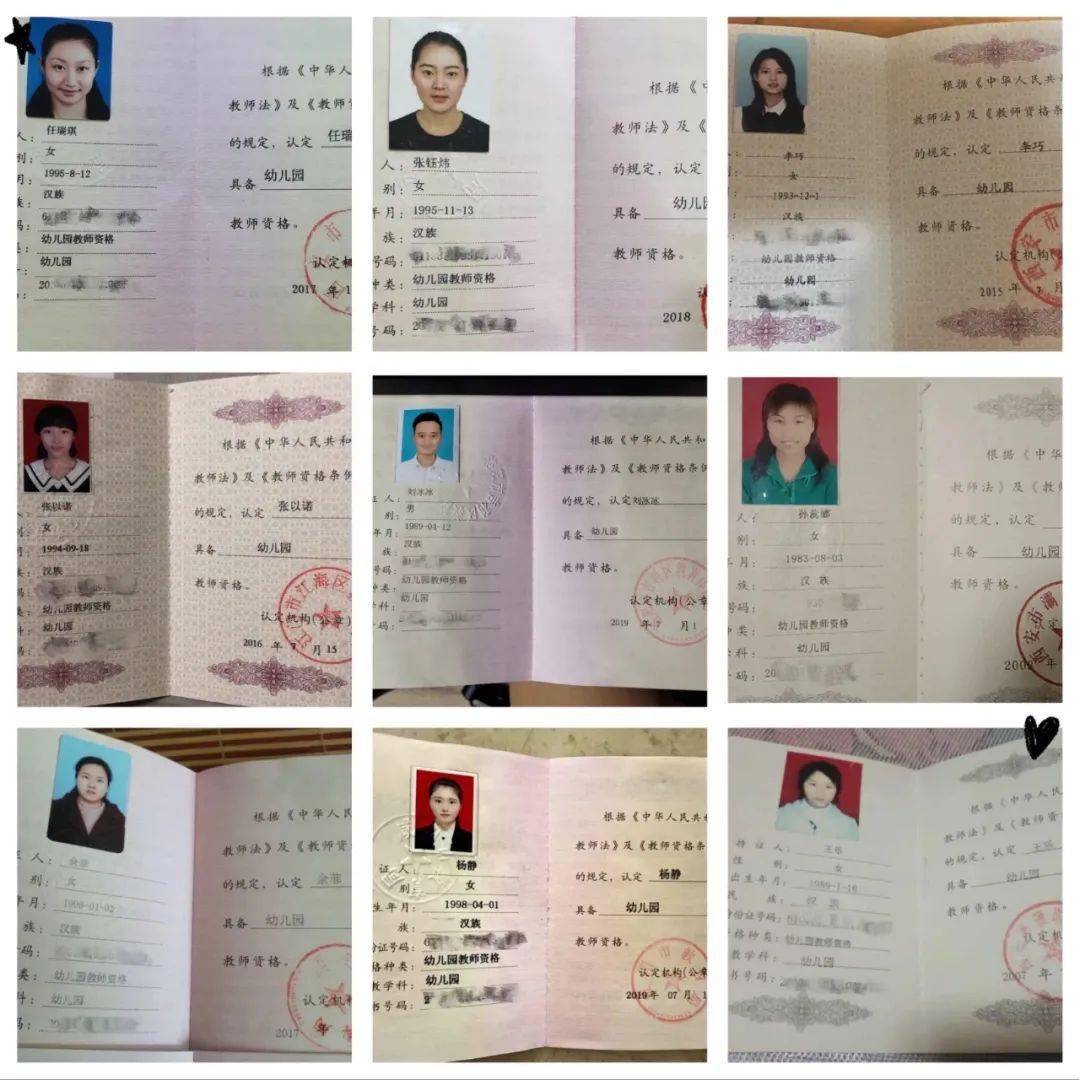 根据《中华人
教师法》及《教师资
的规定，认定 任瑞
具备 幼儿园
教师资格。
人： 任瑞琪
别： 女
1995-8-12
汉族
幼儿园教师资格
幼儿园
20
认定机
2017 年 1
根据《中
教师法》及《
的规定，认定
具备 幼儿
教师资格。
人： 张钰炜
别： 女
年月： 1995-11-13
族： 汉族
号码：
种类： 幼儿园教师资格
学科： 幼儿园
号码： 20
认定
2018
根据《中华人民共
教师法》及《教师资格条
的规定，认定 李巧
具备 幼儿园
教师资格。
李巧
女
1993-12-1
汉族
幼儿园教师资格
幼儿园
认定机构(
2015 年 7 月
根据《中华人民共和
教师法》及《教师资格条例
的规定，认定 张以诺
具备 幼儿园
教师资格。
张以诺
女
1994-09-18
汉族
幼儿园教师资格
幼儿园
市江海区
认定机构(公章)
2016 年 7 月 15
根据《中华人民共和
教师法》及《教师资格条例
的规定，认定 刘冰冰
具备 幼儿园
教师资格。
证人： 刘冰冰
别： 男
年月： 1989-04-12
族： 汉族
号码：
种类： 幼儿园教师资格
学科： 幼儿园
号码：
认定机构(公章
2019 年 7 月 1
根据《中华
教师法》及《教
的规定，认定
具备 幼儿园
教师资格。
人：
别： 女
年月： 1983-08-03
族： 汉族
号码：
种类： 幼儿园教师资格
学科： 幼儿园
号码： 20
西安市
年
根据《中华人民
教师法》及《教师资
的规定，认定 余菲
具备 幼儿园
教师资格。
证人： 余菲
别： 女
年月： 1998-01-02
族： 汉族
号码：
类： 幼儿园教师资格
科： 幼儿园
码： 20
认定机构
2017 年
根据《中华人民共和
教师法》及《教师资格条
的规定，认定 杨静
具备 幼儿园
教师资格。
证人： 杨静
别： 女
生年月： 1998-04-01
族： 汉族
份证号码：
格种类： 幼儿园教师资格
教学科： 幼儿园
书号码： 2
市教
认定机构(公章
2019年 07 月 1
根据《中华人民
教师法》及《教师资
的规定，认定 王乐
具备 幼儿园
教师资格。
持证人： 王乐
性别： 女
出生年月： 1989-1-16
民族： 汉族
身份证号码：
资格种类： 幼儿园教师资格
幼儿园
书号码： 2
认定机
2007 年